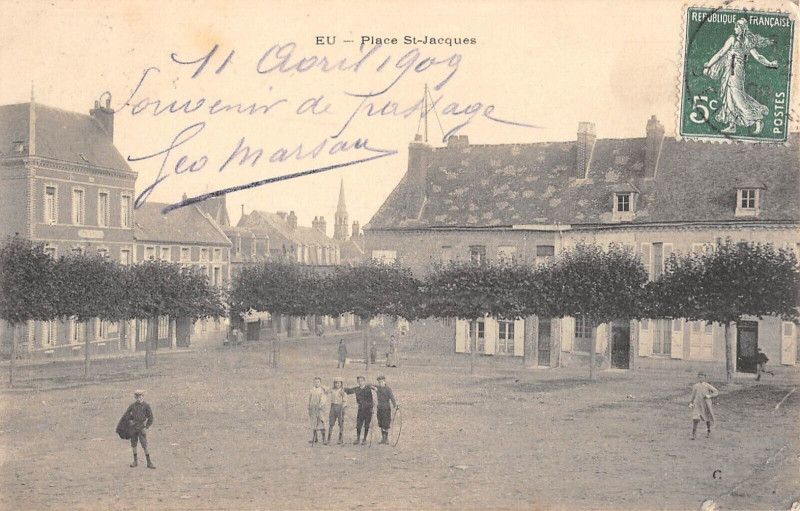 EU — Place St-Jacques
REPUBLIQUE FRANÇAISE
5c
POSTES
11 Avril 1909
Souvenir de passage
Geo Marsan
C